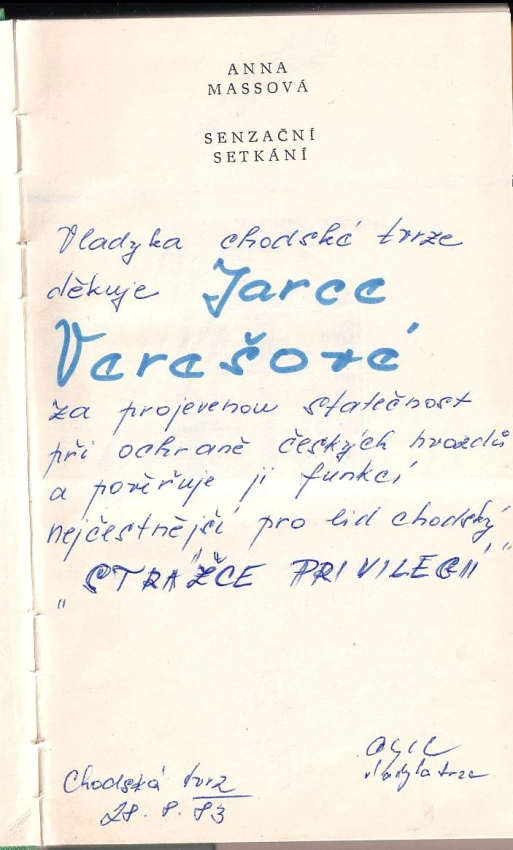 ANNA
MASSOVÁ
SENZAČNÍ
SETKÁNÍ
Vladyka chodské tvrze
děkuje Jarce
Verešové
za projevenou statečnost
při ochraně českých hvozdů
a pověřuje ji funkcí
nejčestnější pro lid chodský
„STRÁŽCE PRIVILEGIÍ"
Chodská tvrz
28. 8. 83
vladyka tvrze